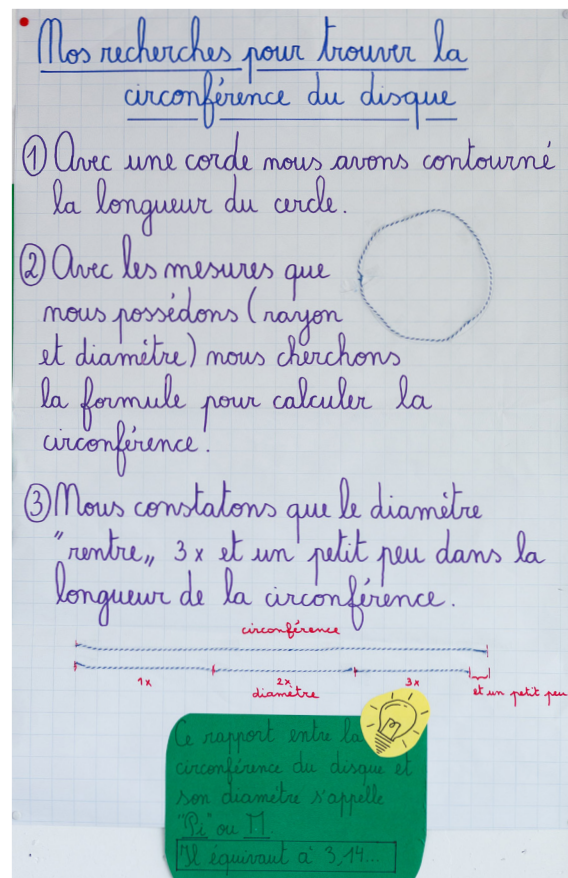 Nos recherches pour trouver la
circonférence du disque
① Avec une corde nous avons contourné
la longueur du cercle.
② Avec les mesures que
nous possédons (rayon
et diamètre) nous cherchons
la formule pour calculer la
circonférence.
③ Nous constatons que le diamètre
"rentre„ 3x et un petit peu dans la
longueur de la circonférence.
circonférence
1x 2x 3x et un petit peu
diamètre
Ce rapport entre la
circonférence du disque et
son diamètre s'appelle
"Pi" ou Π.
Il équivaut à 3,14...